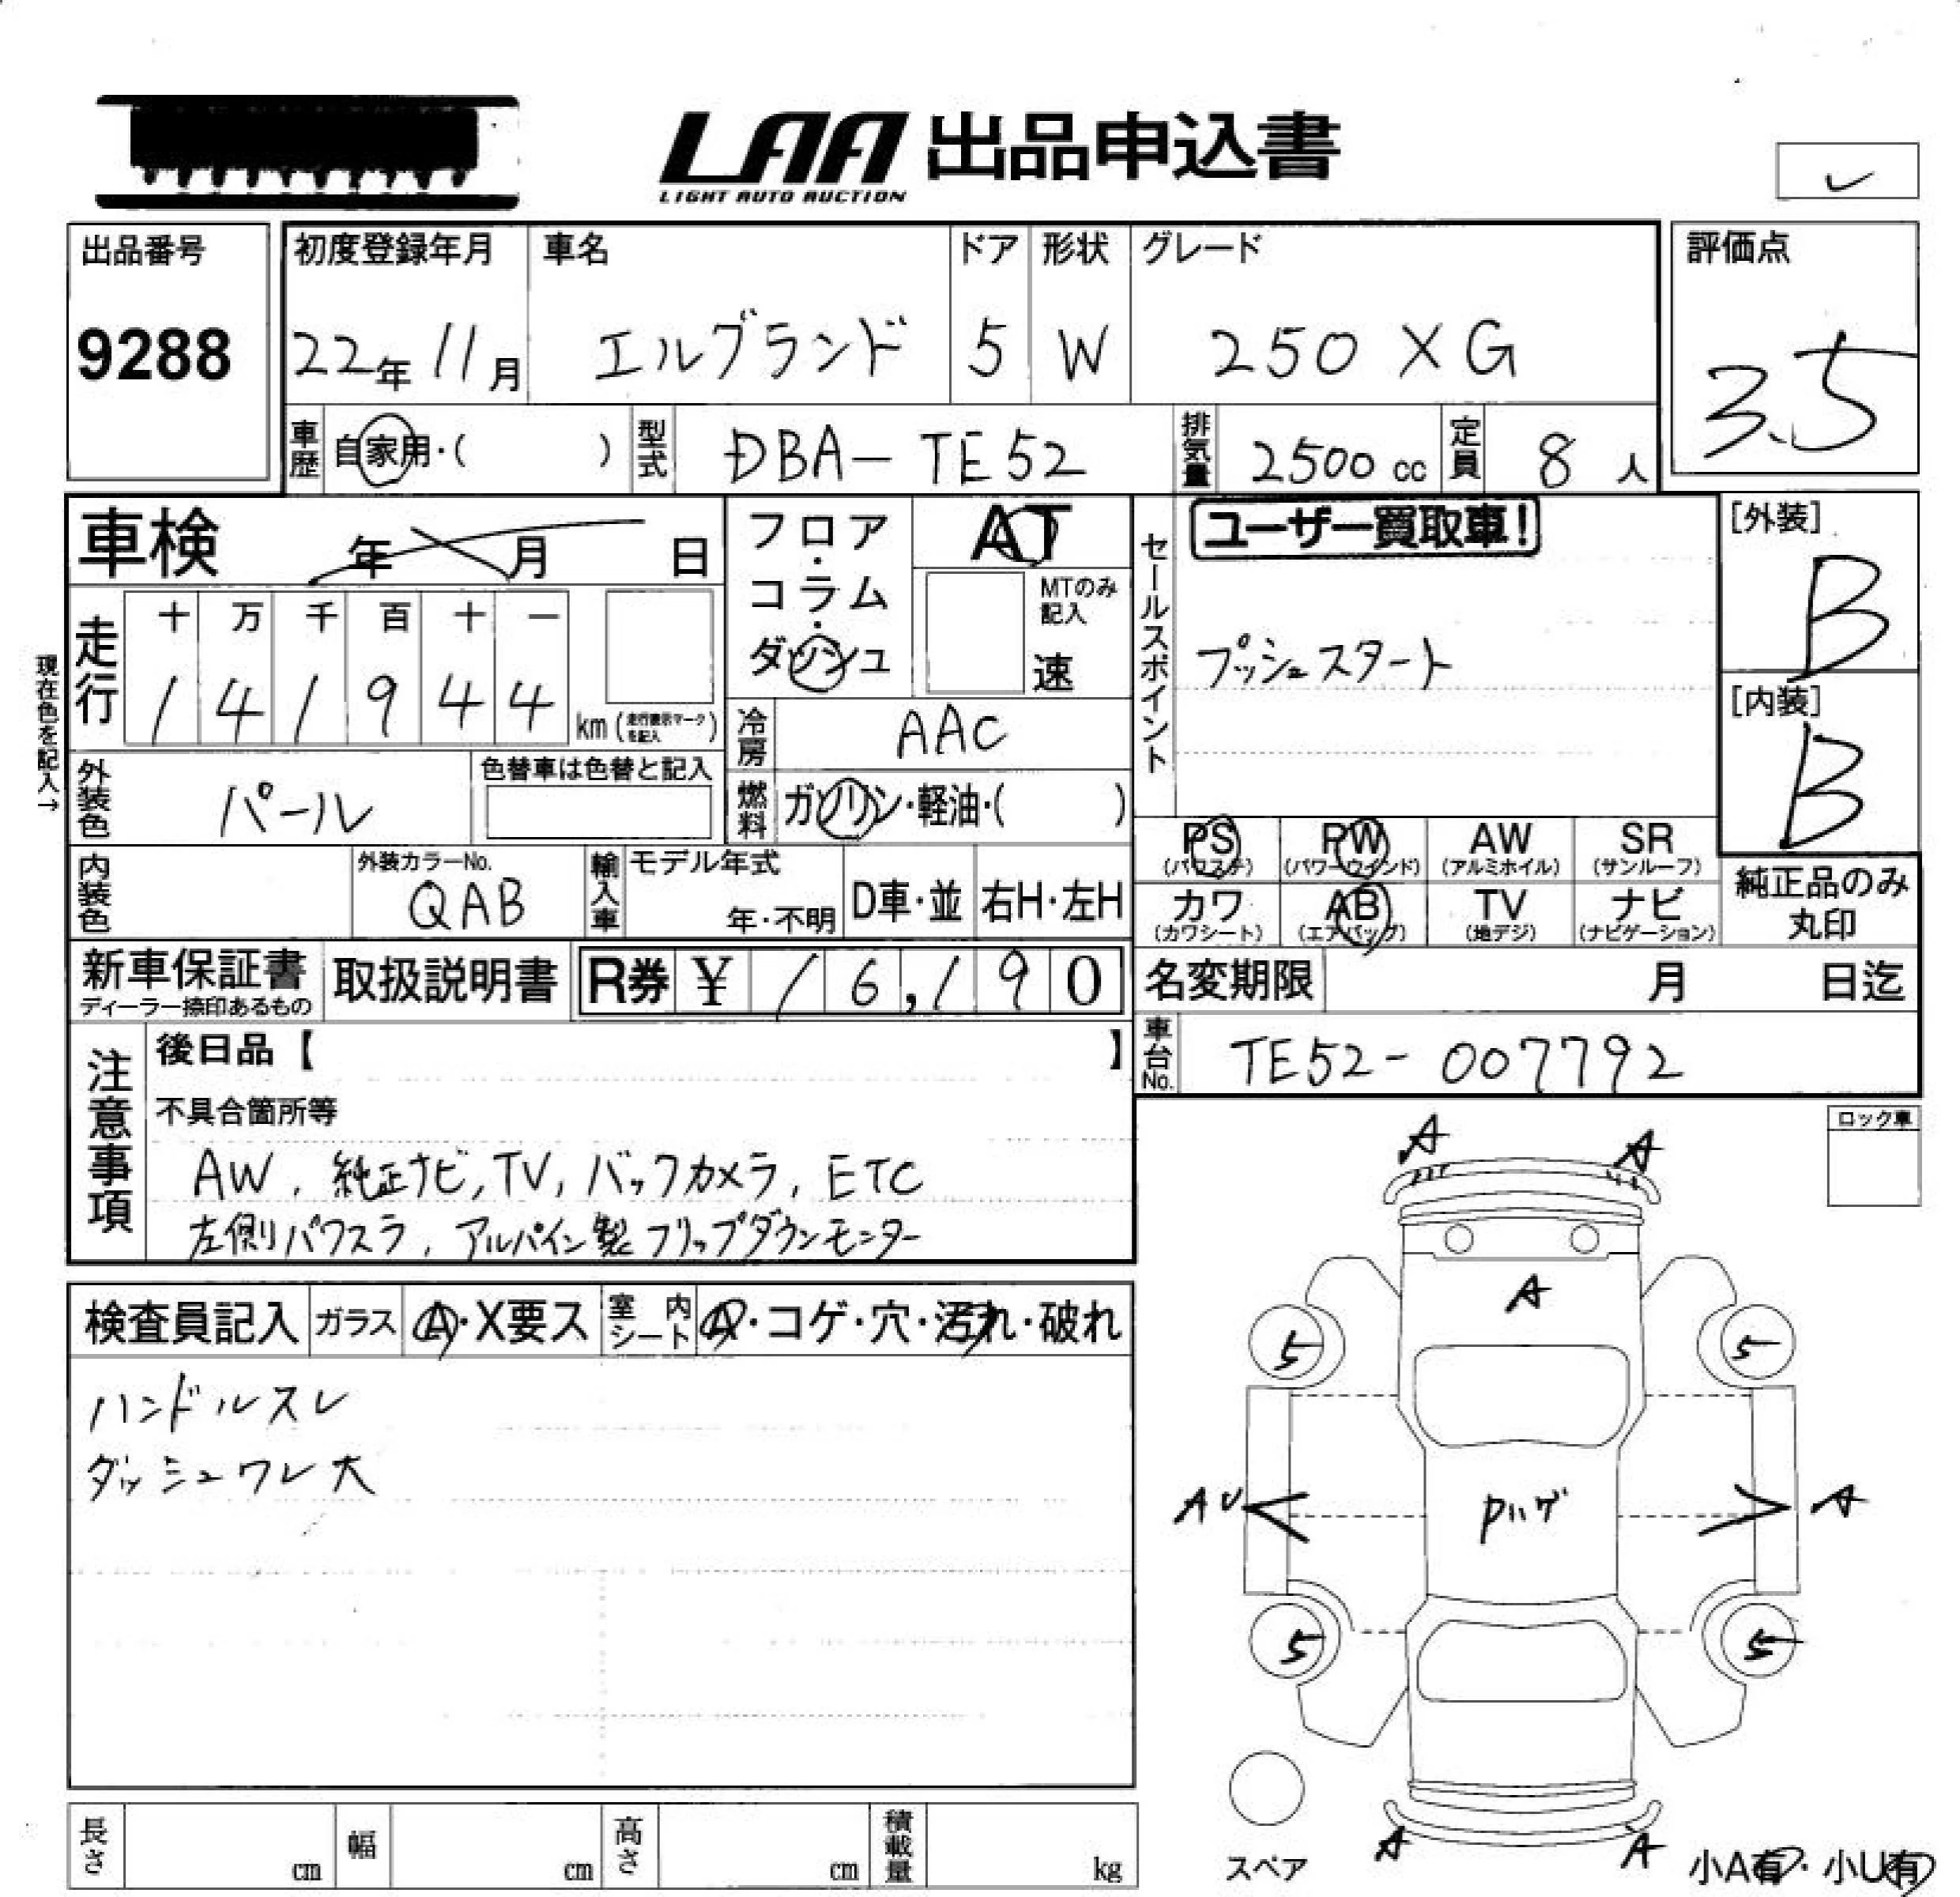 LAA 出品申込書
LIGHT AUTO AUCTION
出品番号
9288
初度登録年月
22年 11月
車名
エルグランド
ドア
5
形状
W
グレード
250 XG
評価点
3.5
車歴
自家用・( )
型式
DBA-TE52
排気量
2500 cc
定員
8 人
車検
年 月 日
フロア・コラム・ダッシュ
AT
MTのみ記入
速
セールスポイント
ユーザー買取車!
プッシュスタート
[外装]
B
[内装]
B
現在色を記入→
走行
十 万 千 百 十 一
1 4 1 9 4 4
km (走行表示マークを記入)
冷房
AAC
外装色
パール
色替車は色替と記入
燃料
ガソリン・軽油・( )
PS (パワステ)
PW (パワーウインド)
AW (アルミホイル)
SR (サンルーフ)
カワ (カワシート)
AB (エアバッグ)
TV (地デジ)
ナビ (ナビゲーション)
純正品のみ
丸印
内装色
外装カラーNo.
QAB
輸入車
モデル年式
年・不明
D車・並
右H・左H
新車保証書
ディーラー捺印あるもの
取扱説明書
R券 ¥ 16,190
名変期限
月 日迄
車台No.
TE52-007792
注意事項
後日品【 】
不具合箇所等
AW, 純正ナビ, TV, バックカメラ, ETC
左側パワスラ, アルパイン製フリップダウンモニター
ロック車
検査員記入
ガラス
A・X要ス
室内シート
A・コゲ・穴・汚れ・破れ
ハンドルスレ
ダッシュワレ大
A A
A
5 5
AU
Pハゲ
A
5 5
A A
スペア
小A有・小U有
長さ cm
幅 cm
高さ cm
積載量 kg